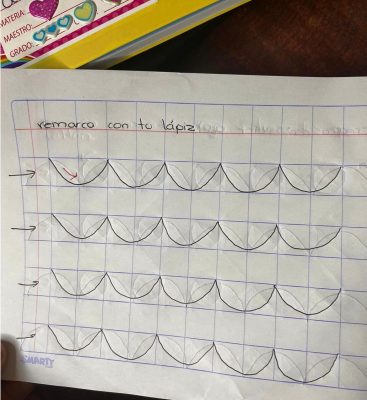 MATERIA:
MAESTRO:
GRADO:
remarco con tu lápiz
SMARTY